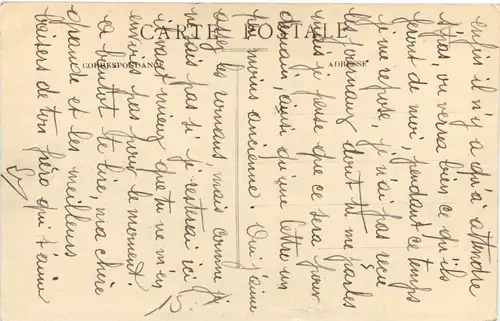 CARTE POSTALE
CORRESPONDANCE
ADRESSE
enfin il n'y a qu'à attendre
et puis on verra bien ce qu'ils
feront de moi, pendant ce temps
je me repose, je n'ai pas reçu
les journaux dont tu me parles
mais je pense que ce sera pour
demain, ainsi qu'une lettre un
peu moins ancienne. Oui j'aime
assez les romans, mais comme je
ne sais pas si je resterai ici
il vaut mieux que tu ne m'en
envoies pas pour le moment.
à bientôt te lire, ma chère
grande et les meilleurs
baisers de ton frère qui t'aime